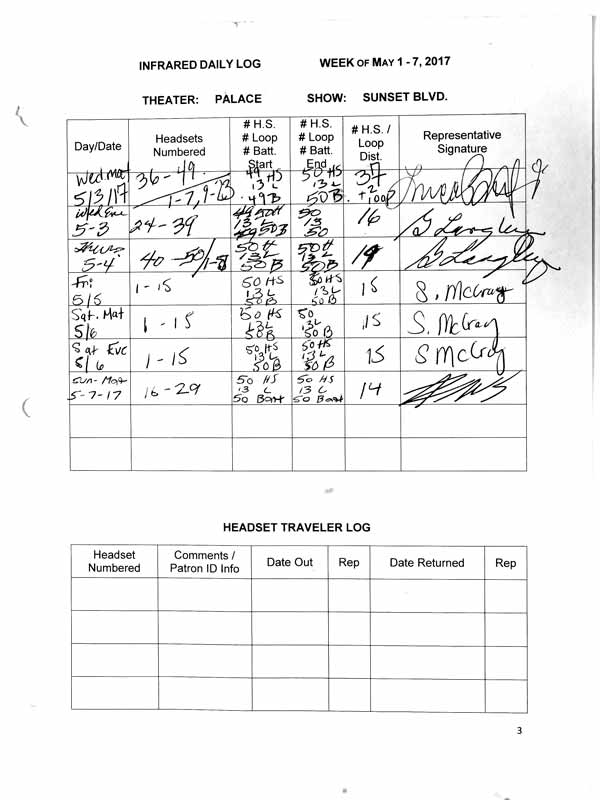 INFRARED DAILY LOG WEEK OF MAY 1 - 7, 2017
THEATER: PALACE SHOW: SUNSET BLVD.
Day/Date
Headsets
Numbered
# H.S.
# Loop
# Batt.
Start
# H.S.
# Loop
# Batt.
End
# H.S. /
Loop
Dist.
Representative
Signature
Wed Mat
5/3/17
36 - 49
1-7, 9-23
49 HS
13 L
49 B
50 HS
13 L
50 B
37
+2
loop
Wed Eve
5-3
24 - 39
50 H
13 L
50 B
50
13
50
16
G Langley
Thurs
5-4
40 - 50/1-8
50 H
13 L
50 B
50 H
13 L
50 B
19
G Langley
Fri
5/5
1 - 15
50 HS
13 L
50 B
50 HS
13 L
50 B
15
S. McCray
Sat. Mat
5/6
1 - 15
50 HS
13 L
50 B
50
13 L
50 B
15
S. McCray
Sat Eve
5/6
1 - 15
50 HS
13 L
50 B
50 HS
13 L
50 B
15
S McCray
Sun - Mat
5-7-17
16 - 29
50 HS
13 L
50 Batt
50 HS
13 L
50 Batt
14
HEADSET TRAVELER LOG
Headset
Numbered
Comments /
Patron ID Info
Date Out
Rep
Date Returned
Rep
3